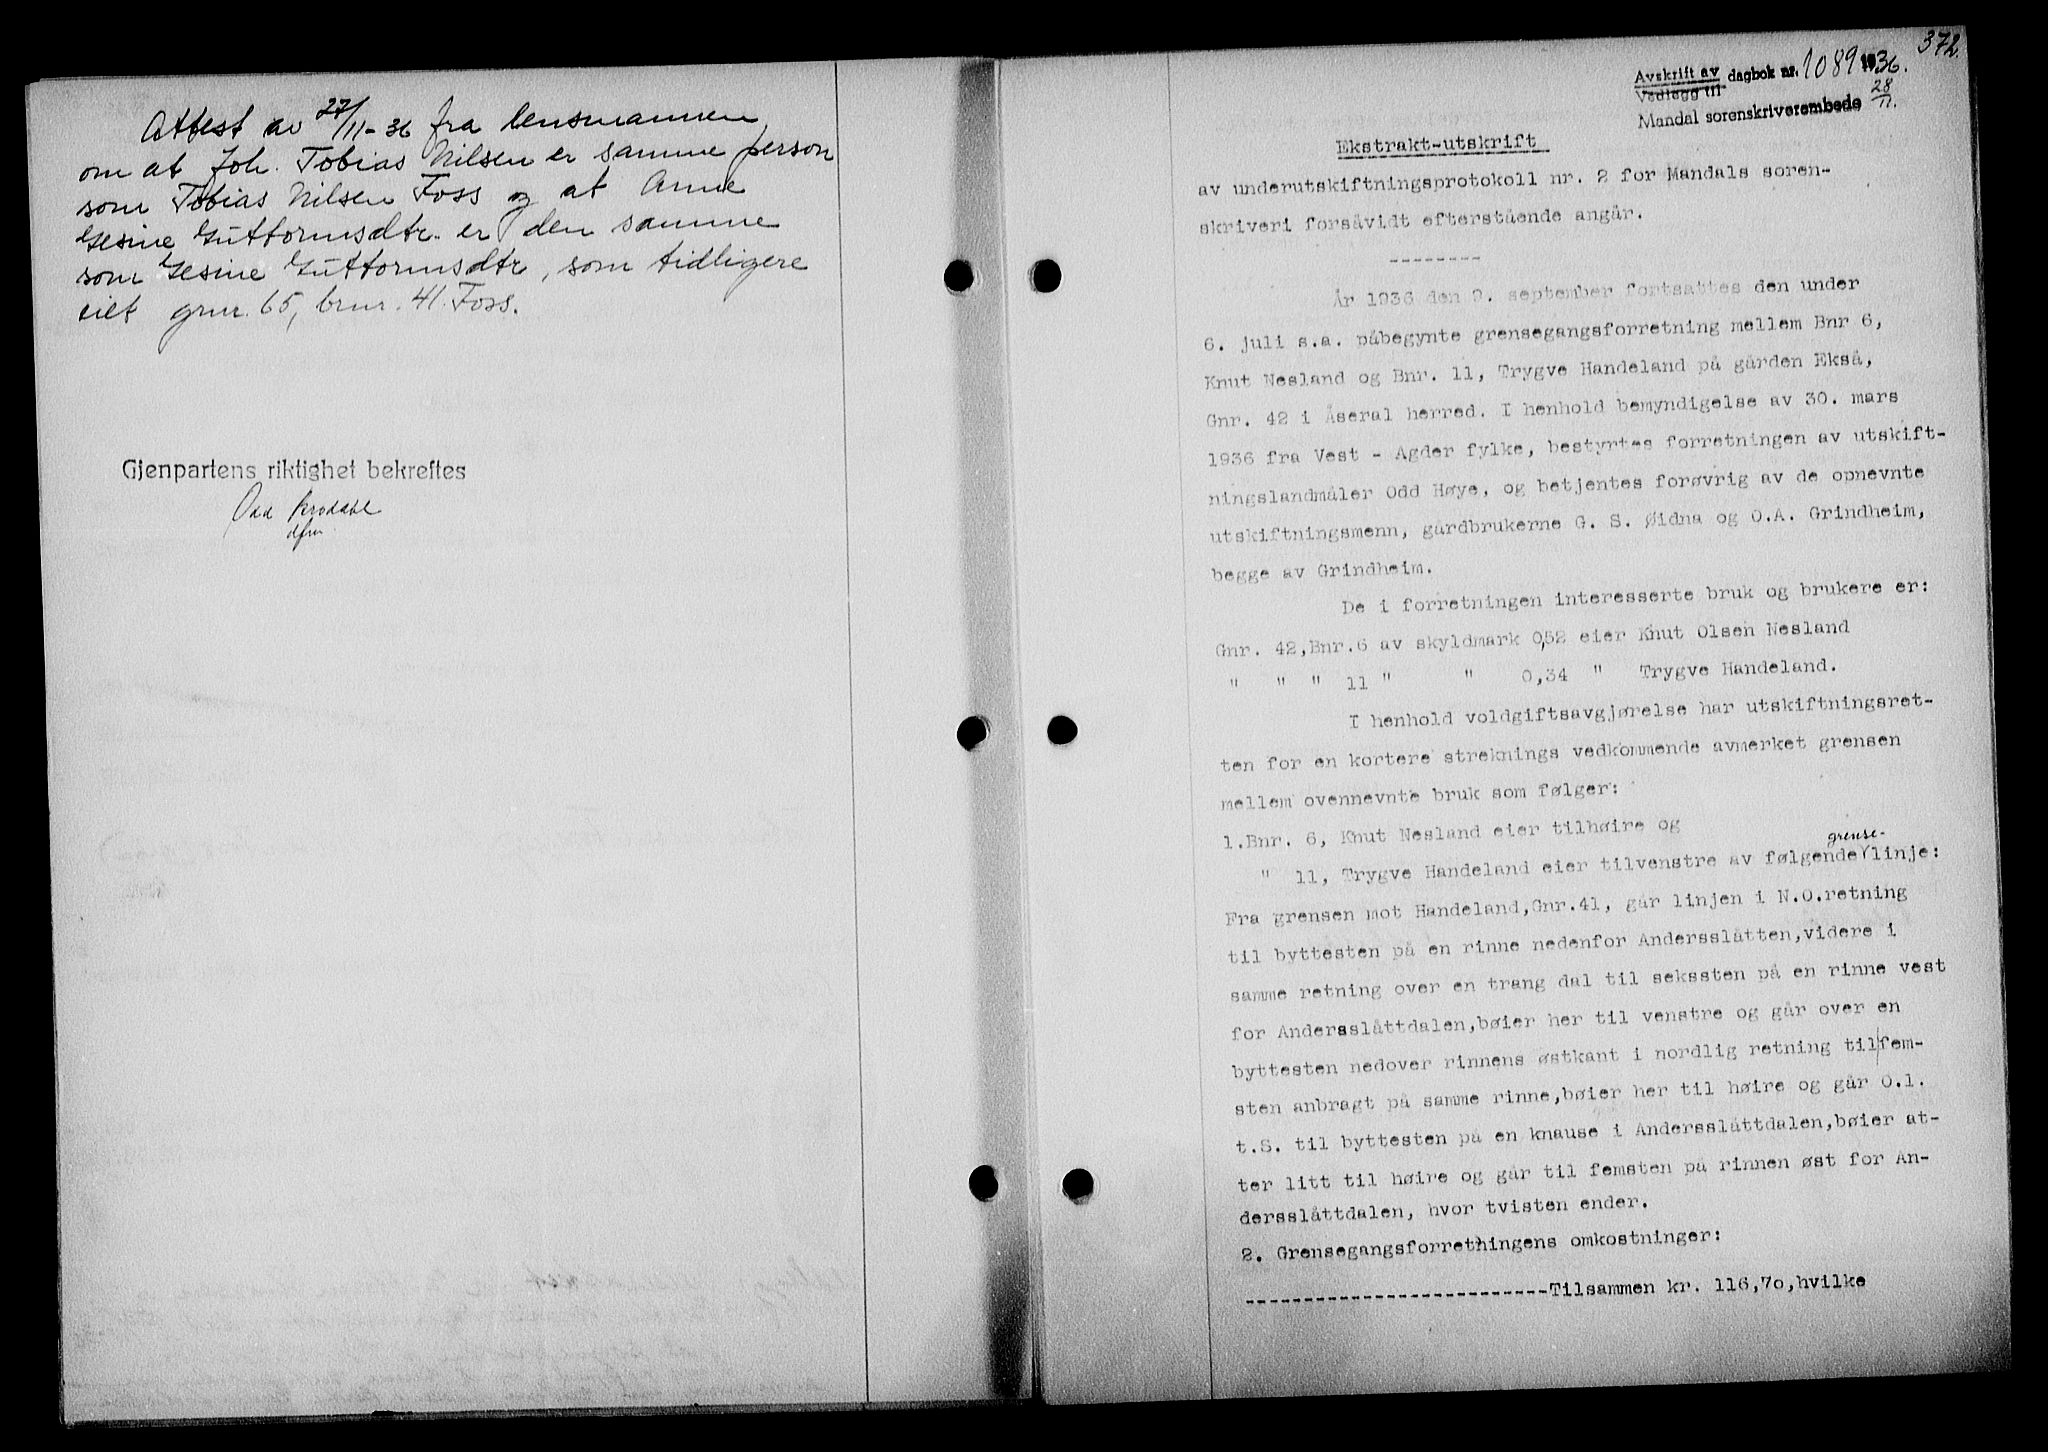 Attest av 27/11-36 fra lensmannen
om at Joh. Tobias Nilsen er samme person
som Tobias Nilsen Foss og at Anne
Gesine Guttormsdtr. er den samme
som Gesine Guttormsdtr, som tidligere
eiet gnr. 65, bnr. 41. Foss.
Gjenpartens riktighet bekreftes
Odd
dfm.
372.
Avskrift av dagbok nr. 1089 1936.
Vedlegg til
28/11.
Mandal sorenskriverembede
Ekstrakt-utskrift
av underutskiftningsprotokoll nr. 2 for Mandals soren-
skriveri forsåvidt efterstående angår.
--------
År 1936 den 9. september fortsattes den under
6. juli s.a. påbegynte grensegangsforretning mellem Bnr 6,
Knut Nesland og Bnr. 11, Trygve Handeland på gården Ekså,
Gnr. 42 i Åseral herred. I henhold bemyndigelse av 30. mars
1936 fra Vest - Agder fylke, bestyrtes forretningen av utskift-
ningslandmåler Odd Høye, og betjentes forøvrig av de opnevnte
utskiftningsmenn, gårdbrukerne G. S. Øidna og O.A. Grindheim,
begge av Grindheim.
De i forretningen interesserte bruk og brukere er:
Gnr. 42,Bnr.6 av skyldmark 0,52 eier Knut Olsen Nesland
" " " 11 " " 0,34 " Trygve Handeland.
I henhold voldgiftsavgjørelse har utskiftningsret-
ten for en kortere streknings vedkommende avmerket grensen
mellem ovennevnte bruk som følger:
1.Bnr. 6, Knut Nesland eier tilhøire og
grense-
" 11, Trygve Handeland eier tilvenstre av følgende linje:
Fra grensen mot Handeland,Gnr.41, går linjen i N.O.retning
til byttesten på en rinne nedenfor Andersslåtten,videre i
samme retning over en trang dal til seksten på en rinne vest
for Andersslåttdalen,bøier her til venstre og går over en
byttesten nedover rinnens østkant i nordlig retning til fem-
sten anbragt på samme rinne,bøier her til høire og går O.l.
t.S. til byttesten på en knause i Andersslåttdalen,bøier at-
ter litt til høire og går til femsten på rinnen øst for An-
dersslåttdalen, hvor tvisten ender.
2. Grensegangsforretningens omkostninger:
--------------------------Tilsammen kr. 116,70,hvilke